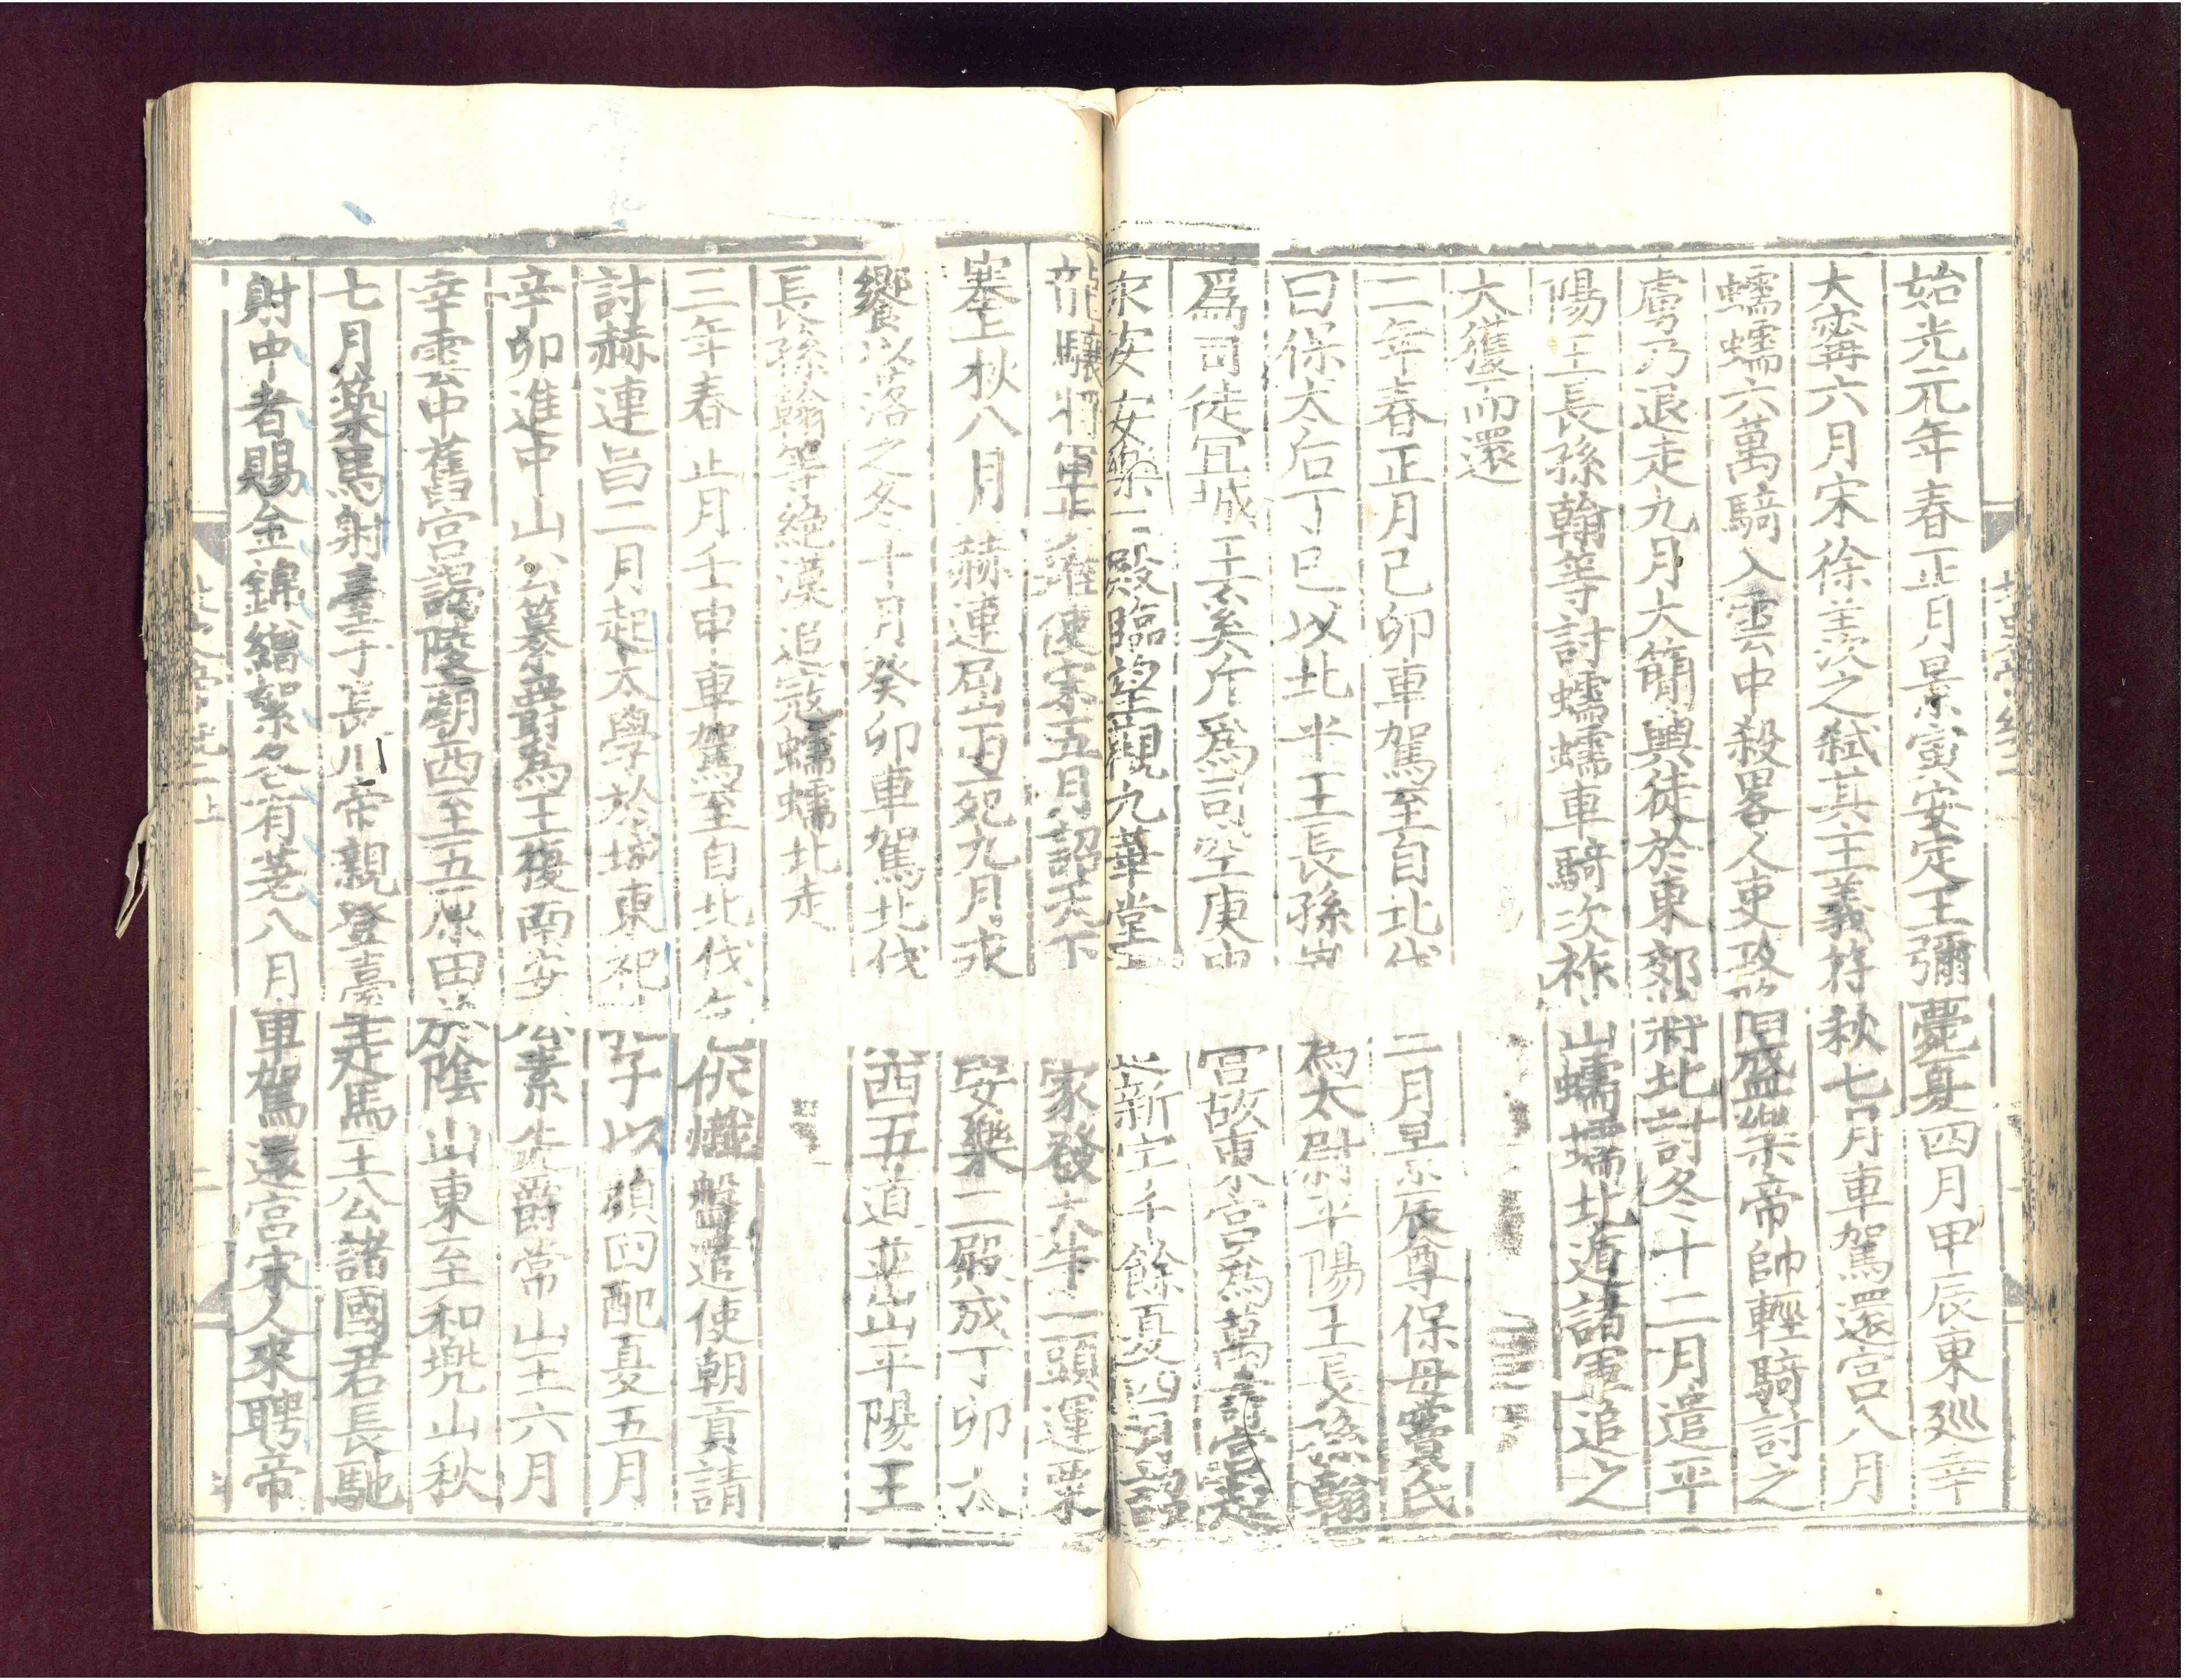 始光元年春正月景寅安定王彌薨夏四月甲辰東巡幸
大甯六月宋徐羨之弑其主義符秋七月車駕還宮八月
蠕蠕六萬騎入雲中殺畧人吏攻陷盛樂帝帥輕騎討之
虜乃退走九月大簡輿徒於東郊將北討冬十二月遣平
陽王長孫翰等討蠕蠕車騎次祚山蠕蠕北遁諸軍追之
大獲而還
二年春正月己卯車駕至自北伐二月景辰尊保母竇氏
曰保太后丁巳以北平王長孫嵩爲太尉平陽王長孫翰
爲司徒宜城王奚斤爲司空庚申宮故東宮爲萬壽宮起
永安安樂二殿臨望觀九華堂
新宇千餘夏四月詔
龍驤將軍步 使宋五月詔天下家發大牛一頭運粟
塞上秋八月赫連屈丐死九月永安樂二殿成丁卯大
饗以落之冬十月癸卯車駕北伐西五道並出平陽王
長孫翰等絶漠追寇蠕蠕北走
三年春正月壬申車駕至自北伐乞伏熾盤遣使朝貢請
討赫連昌二月起太學於城東祀孔子以顏回配夏五月
辛卯進中山公纂爵爲王復南安公素先爵常山王六月
幸雲中舊宮謁陵廟西至五原田於陰山東至和兜山秋
七月築馬射臺于長川帝親登臺走馬王公諸國君長馳
射中者賜金錦繒絮各有差八月車駕還宮宋人來聘帝